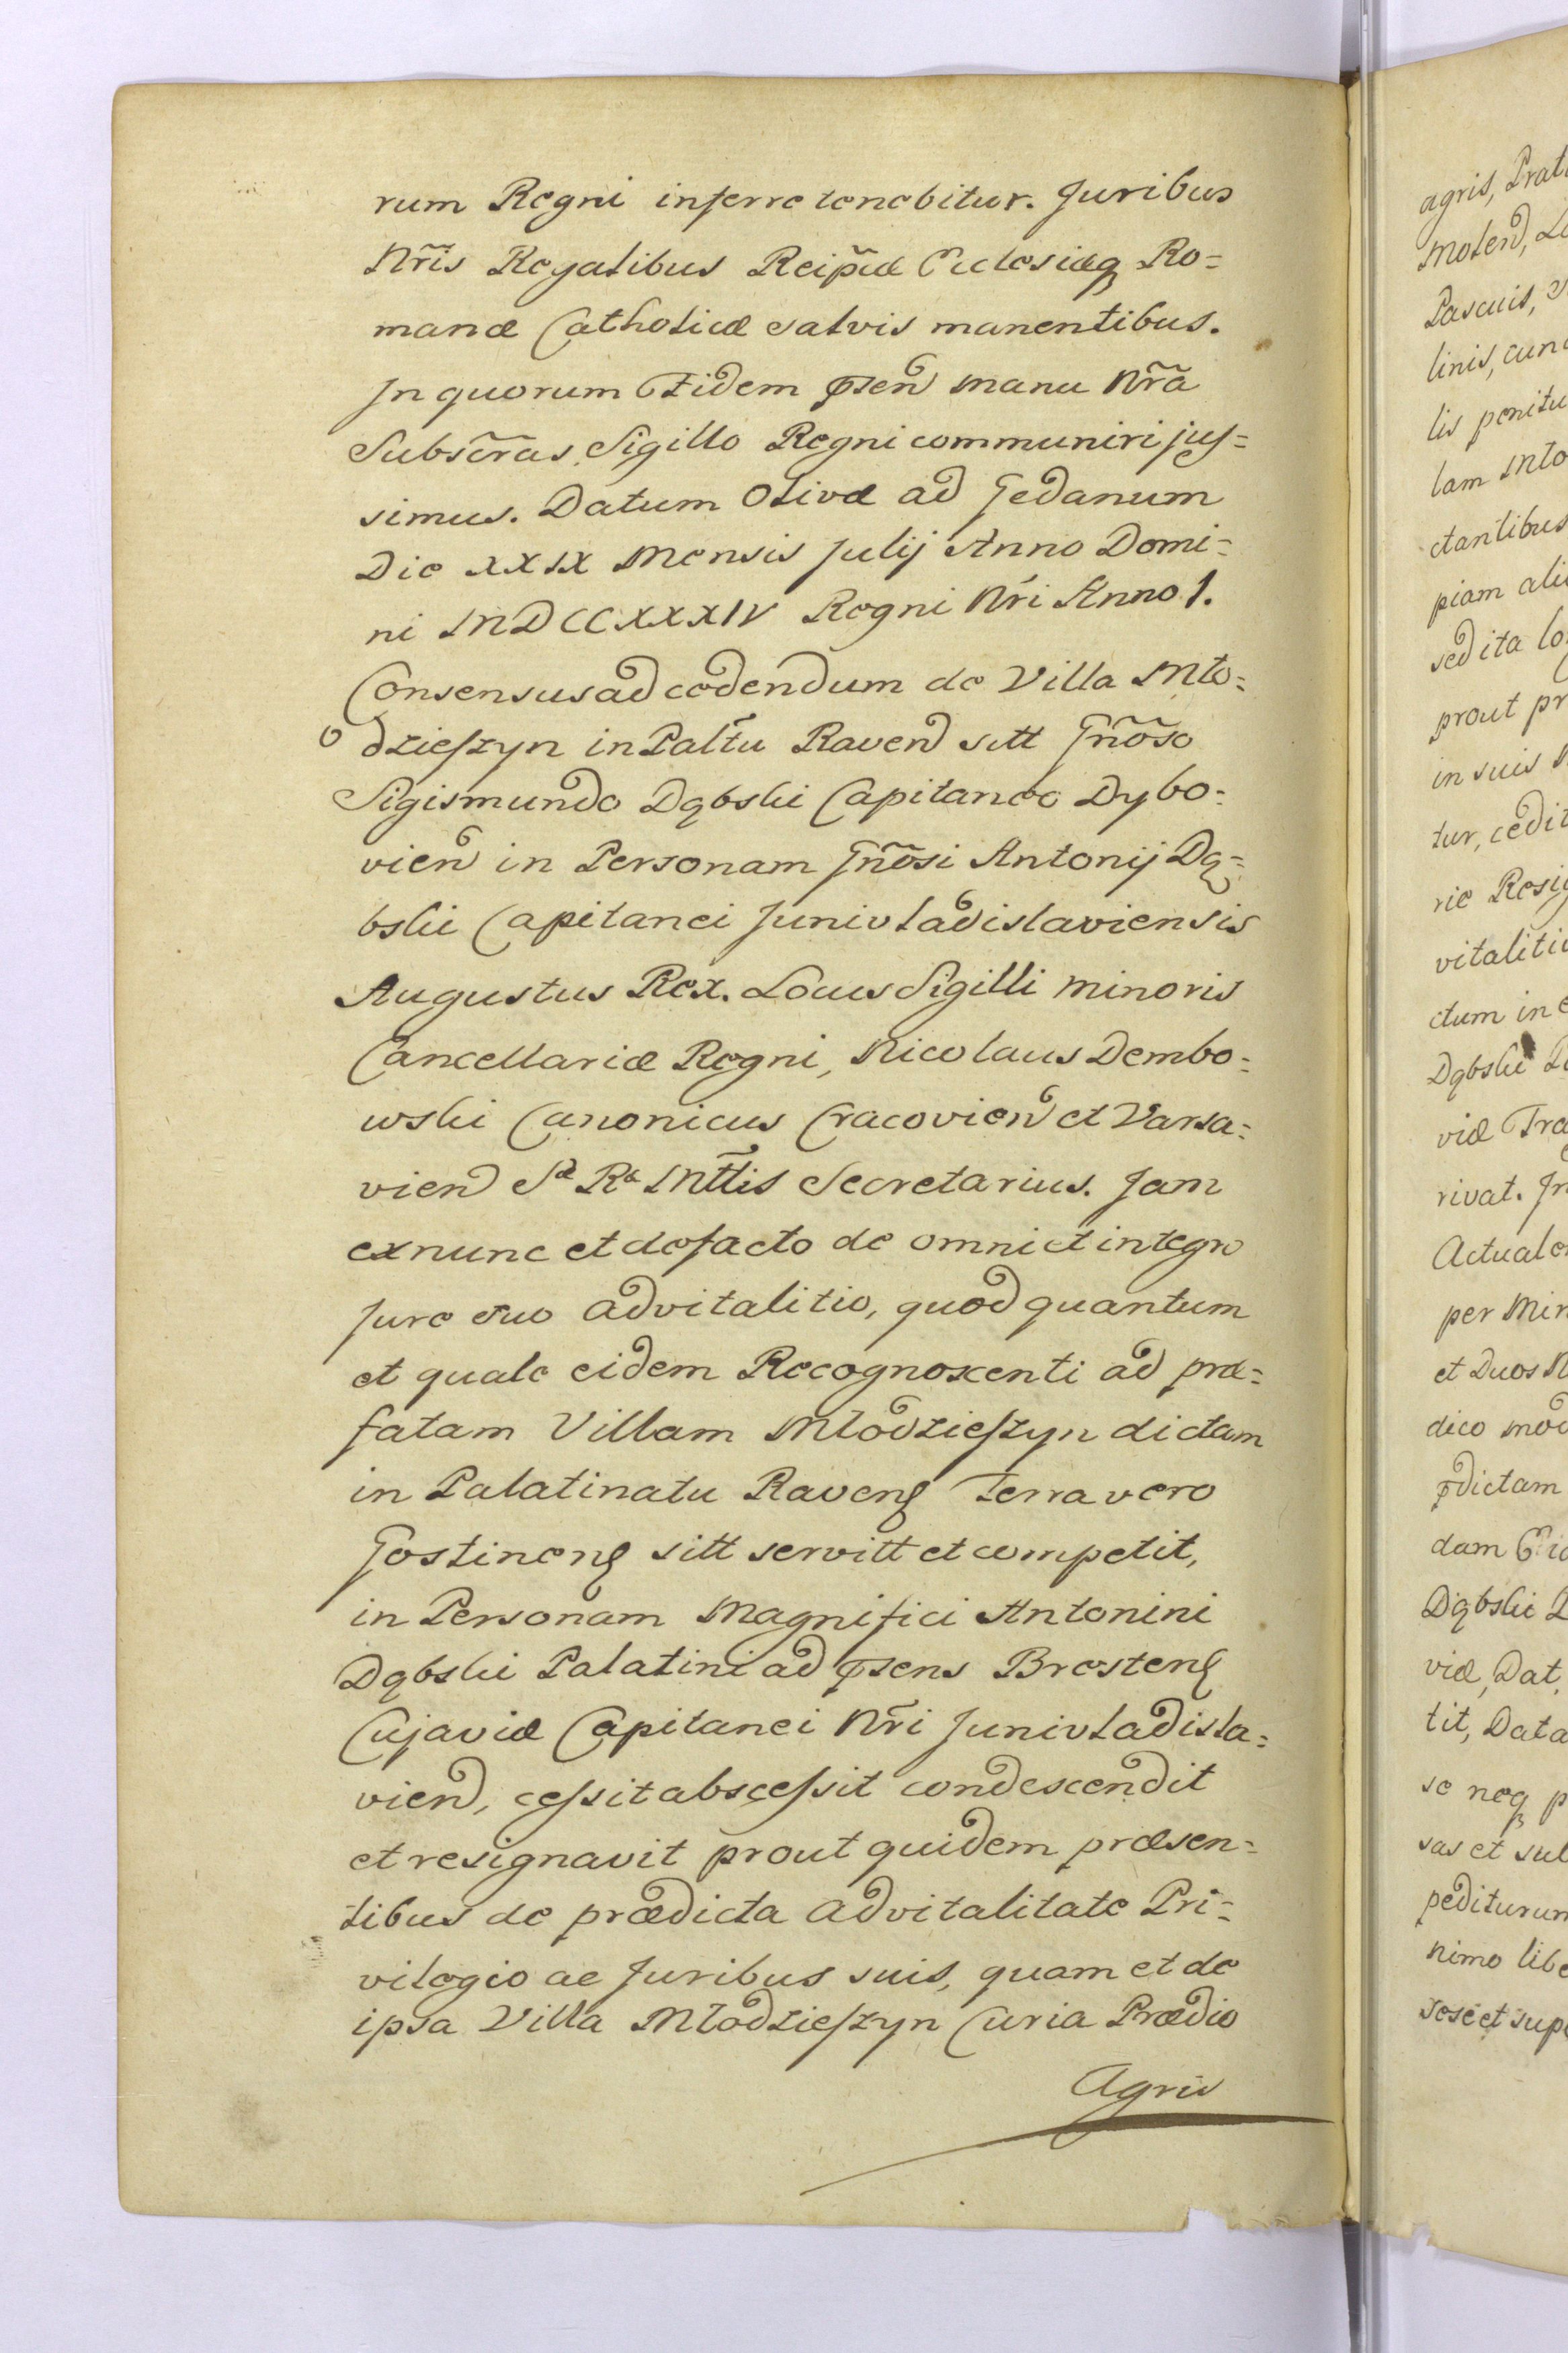 rum Regni inferre tenebitur. Juribus
Nr̃is Regalibus Reip̃cæ Ecclesiæq̃ Ro=
manæ Catholicæ salvis manentibus.
In quorum Fidem p̃sen̄ manu Nr̃a
Subscr̃as, Sigillo Regni communiri jus=
simus. Datum Olivæ ad Gedanum
Die XXIX Mensis Julij Anno Domi=
ni MDCCXXXIV Regni Nr̃i Anno 1.
Consensus ad cedendum de Villa Mło=
dzieszyn in Palt̃u Raven̄ sitt Gñoso
Sigismundo Dąbski Capitaneo Dybo=
vien̄ in Personam Gñosi Antonij Dą=
bski Capitanei Junivladislaviensis
Augustus Rex. Locus Sigilli minoris
Cancellariæ Regni, Nicolaus Dembo=
wski Canonicus Cracovien̄ et Varsa=
vien̄ Sæ Ræ Mttis Secretarius. Jam
ex nunc et de facto de omni et integro
Jure suo advitalitio, quod quantum
et quale eidem Recognoscenti ad præ=
fatam Villam Młodzieszyn dictam
in Palatinatu Ravenȩ Terra vero
Gostinenȩ sitt servitt et competit,
in Personam Magnifici Antonini
Dąbski Palatini ad p̃sens Brestenȩ
Cujaviæ Capitanei Nr̃i Junivladisla=
vien̄, cessit abscessit condescendit
et resignavit prout quidem præsen=
tibus de prædicta advitalitate Pri=
vilegio ac Juribus suis, quam et de
ipsa Villa Młodzieszyn Curia Prædio
Agris
agris, Prat
Molen̄,
Pascuis,
linis, cun
lis penitu
lam Mło
ctantibus
piam ali
sed ita lo
prout pr
in suis
tur, cedit
rie Resi
vitaliti
ctum in
Dąbski
viæ Tra
rivat. In
Actuale
per Min
et Duos
dico mod
p̃dictam
dam
Dąbski
viæ, Dat,
tit, Data
se neq̃ p
sas et sul
pediturum
nimo libe
sese et sup